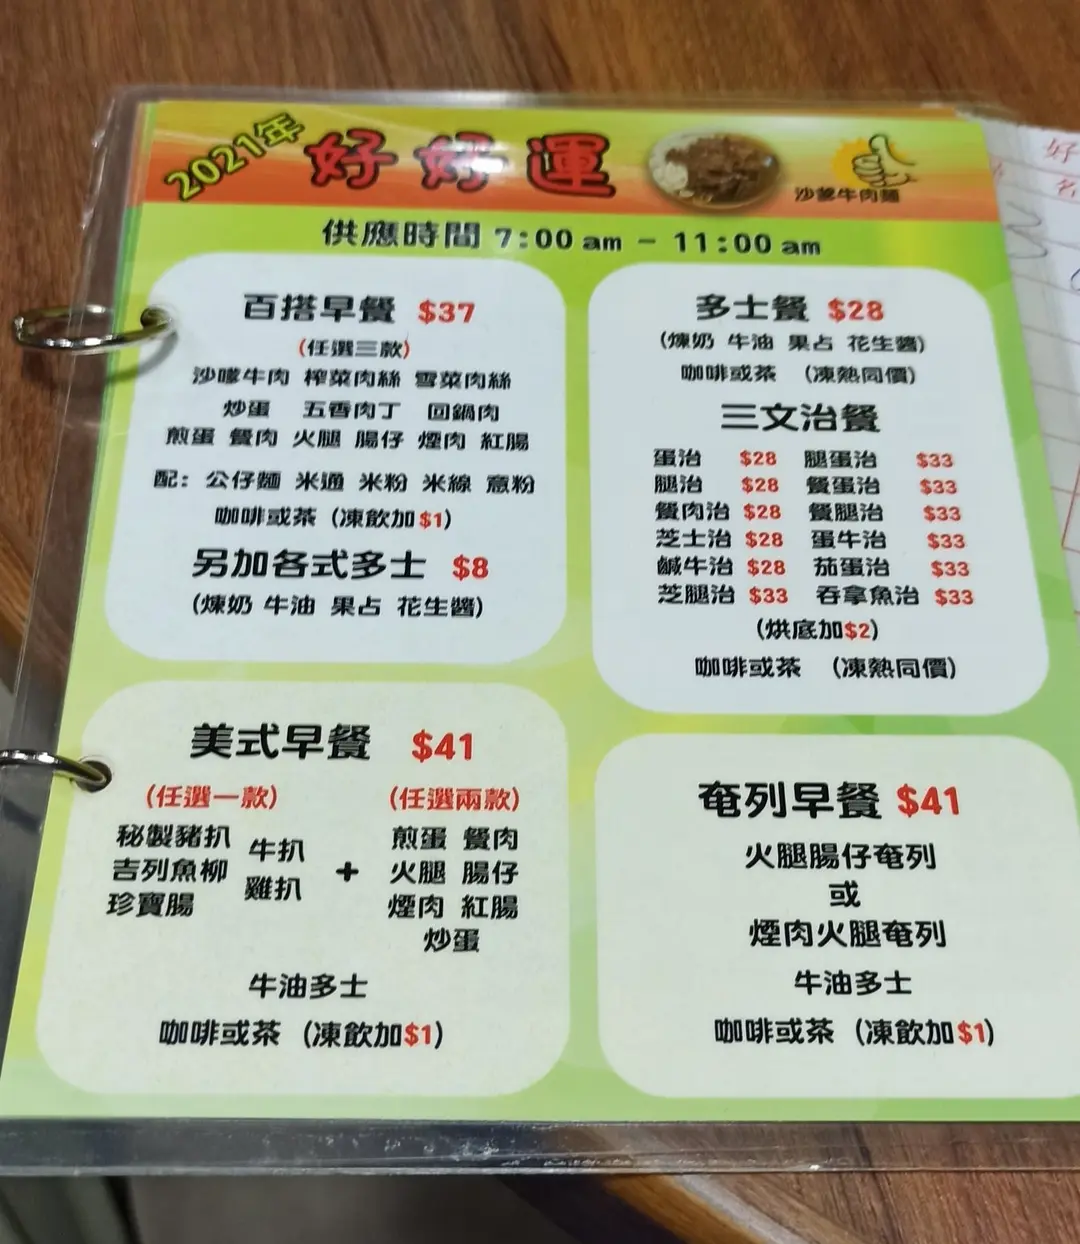 2021年
好好運
沙爹牛肉麵
供應時間 7:00 am - 11:00 am
百搭早餐 $37
(任選三款)
沙嗲牛肉 榨菜肉絲 雪菜肉絲
炒蛋 五香肉丁 回鍋肉
煎蛋 餐肉 火腿 腸仔 煙肉 紅腸
配: 公仔麵 米通 米粉 米線 意粉
咖啡或茶 (凍飲加$1)
另加各式多士 $8
(煉奶 牛油 果占 花生醬)
多士餐 $28
(煉奶 牛油 果占 花生醬)
咖啡或茶 (凍熱同價)
三文治餐
蛋治 $28 腿蛋治 $33
腿治 $28 餐蛋治 $33
餐肉治 $28 餐腿治 $33
芝士治 $28 蛋牛治 $33
鹹牛治 $28 茄蛋治 $33
芝腿治 $33 吞拿魚治 $33
(烘底加$2)
咖啡或茶 (凍熱同價)
美式早餐 $41
(任選一款) (任選兩款)
秘製豬扒 牛扒 煎蛋 餐肉
吉列魚柳 雞扒 + 火腿 腸仔
珍寶腸 煙肉 紅腸
炒蛋
牛油多士
咖啡或茶 (凍飲加$1)
奄列早餐 $41
火腿腸仔奄列
或
煙肉火腿奄列
牛油多士
咖啡或茶 (凍飲加$1)
好